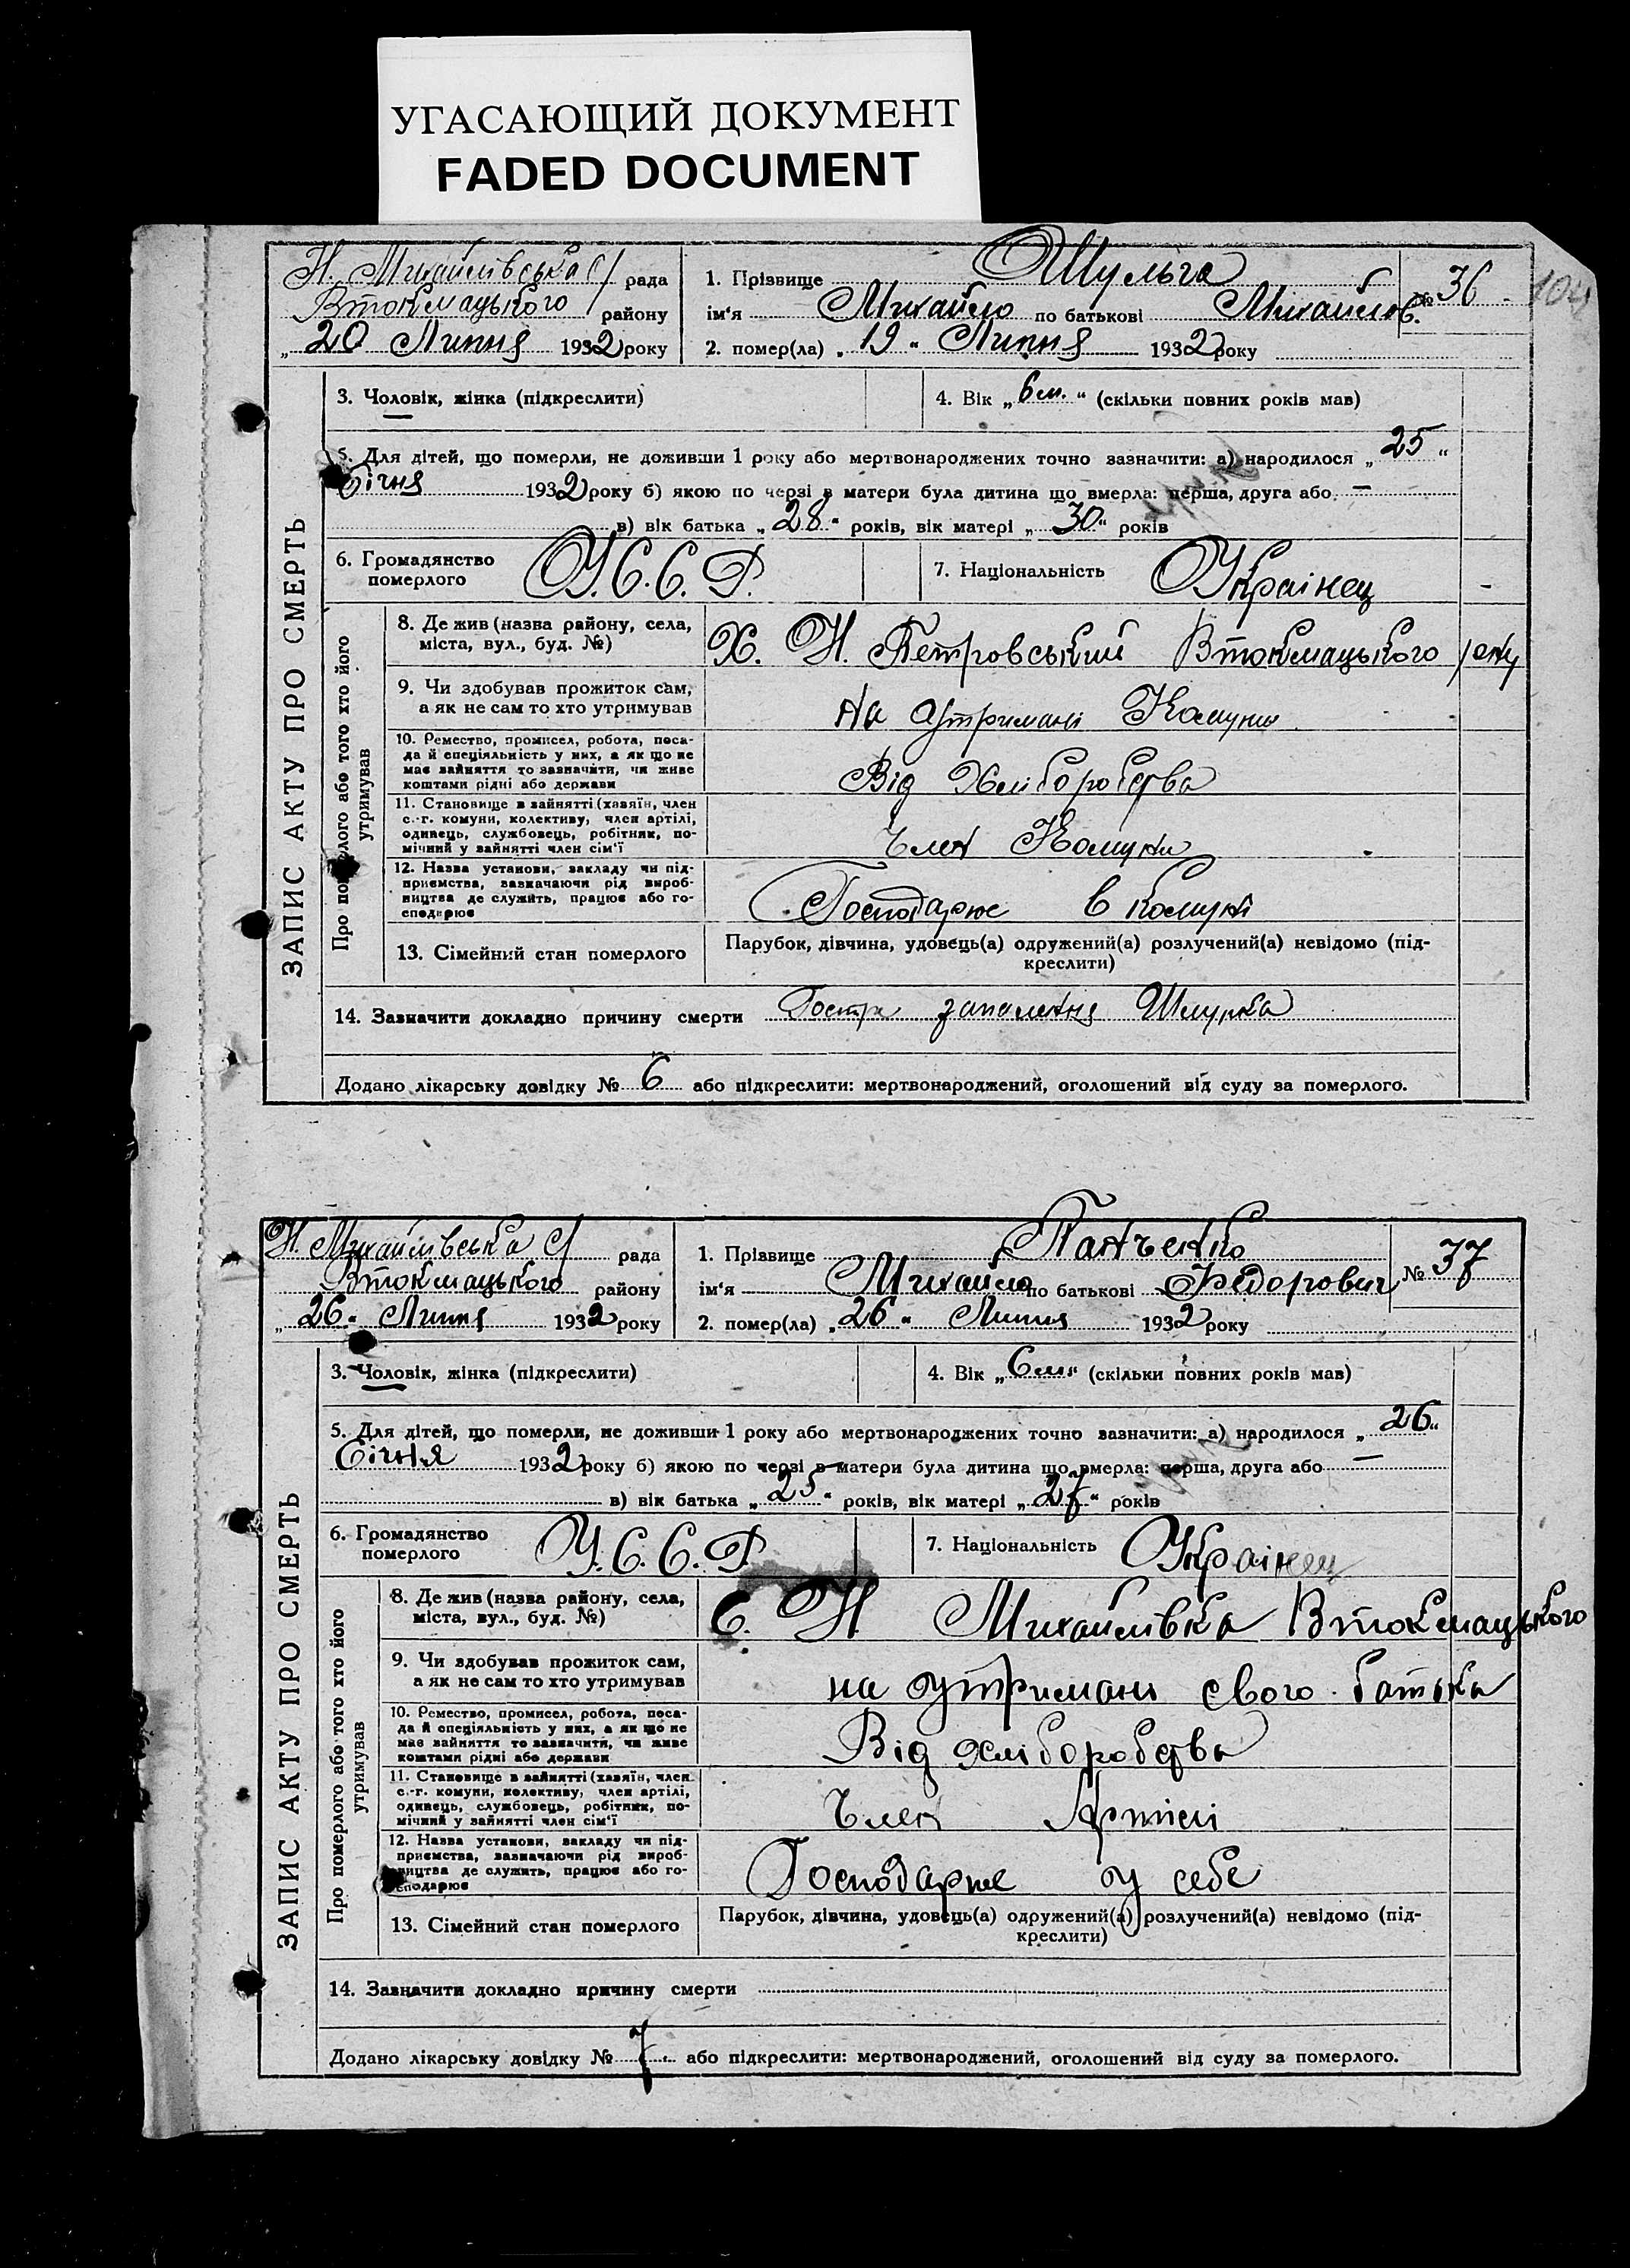 УГАСАЮЩИЙ ДОКУМЕНТ
FADED DOCUMENT
Н. Михайлівська с/ рада
Втокмацького району
„ 20 Липня 1932 року
1. Прізвище Шульга
ім'я Михайло по батькові Михайлов.
№ 36
2. помер(ла) „ 19 " Липня 1932 року
ЗАПИС АКТУ ПРО СМЕРТЬ
3. Чоловік, жінка (підкреслити)
4. Вік „ 6 м. " (скільки повних років мав)
5. Для дітей, що померли, не доживши 1 року або мертвонароджених точно зазначити: а) народилося „ 25 "
Січня 1932 року б) якою по черзі в матери була дитина що вмерла: перша, друга або —
в) вік батька „ 28 " років, вік матері „ 30 " років
6. Громадянство
померлого У.С.С.Р.
7. Національність Українец
Про померлого або того хто його
утримував
8. Де жив (назва району, села,
міста, вул., буд. №)
Х. Н. Петровський Втокмацького р/ону
9. Чи здобував прожиток сам,
а як не сам то хто утримував
на утримані Комуни
10. Ремество, промисел, робота, поса-
да й спеціяльність у них, а як що не
має зайняття то зазначити, чи живе
коштами рідні або держави
Від Хліборобства
11. Становище в зайнятті (хазяїн, член
с.-г. комуни, колективу, член артілі,
одинець, службовець, робітник, по-
мічний у зайнятті член сім'ї
Член Комуни
12. Назва установи, закладу чи під-
приємства, зазначаючи рід вироб-
ництва де служить, працює або го-
сподарює
Господарює в комуні
13. Сімейний стан померлого
Парубок, дівчина, удовець(а) одружений(а) розлучений(а) невідомо (під-
креслити)
14. Зазначити докладно причину смерти Гостре запалення Шлунка
Додано лікарську довідку № 6 або підкреслити: мертвонароджений, оголошений від суду за померлого.
Н. Михайлівська с/ рада
Втокмацького району
„ 26 " Липня 1932 року
1. Прізвище Панченко
ім'я Михайло по батькові Федорович
№ 37
2. помер(ла) „ 26 " Липня 1932 року
ЗАПИС АКТУ ПРО СМЕРТЬ
3. Чоловік, жінка (підкреслити)
4. Вік „ 6 м. " (скільки повних років мав)
5. Для дітей, що померли, не доживши 1 року або мертвонароджених точно зазначити: а) народилося „ 26 "
Січня 1932 року б) якою по черзі в матери була дитина що вмерла: перша, друга або —
в) вік батька „ 25 " років, вік матері „ 27 " років
6. Громадянство
померлого У.С.С.Р.
7. Національність Українец
Про померлого або того хто його
утримував
8. Де жив (назва району, села,
міста, вул., буд. №)
С. Н Михайлівка Втокмацького
9. Чи здобував прожиток сам,
а як не сам то хто утримував
на утримані свого батька
10. Ремество, промисел, робота, поса-
да й спеціяльність у них, а як що не
має зайняття то зазначити, чи живе
коштами рідні або держави
Від хліборобства
11. Становище в зайнятті (хазяїн, член
с.-г. комуни, колективу, член артілі,
одинець, службовець, робітник, по-
мічний у зайнятті член сім'ї
Член Артілі
12. Назва установи, закладу чи під-
приємства, зазначаючи рід вироб-
ництва де служить, працює або го-
сподарює
Господарює у себе
13. Сімейний стан померлого
Парубок, дівчина, удовець(а) одружений(а) розлучений(а) невідомо (під-
креслити)
14. Зазначити докладно причину смерти
Додано лікарську довідку № 7 або підкреслити: мертвонароджений, оголошений від суду за померлого.